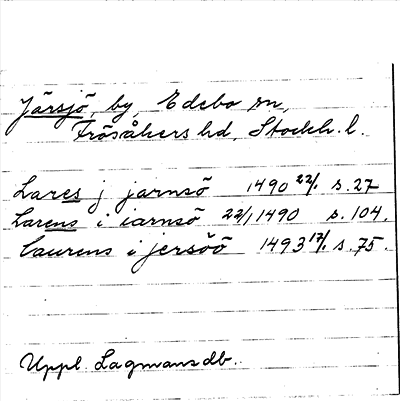 Järsjö, by, Edebo sn,
Frösåkers hd, Stockh. l.
Lares j jarnsö 1490 22/1. s. 27
Larens i iarnsö 22/1 1490 s. 104.
laurens i jersöö 1493 17/1. s. 75.
Uppl. Lagmansdb.